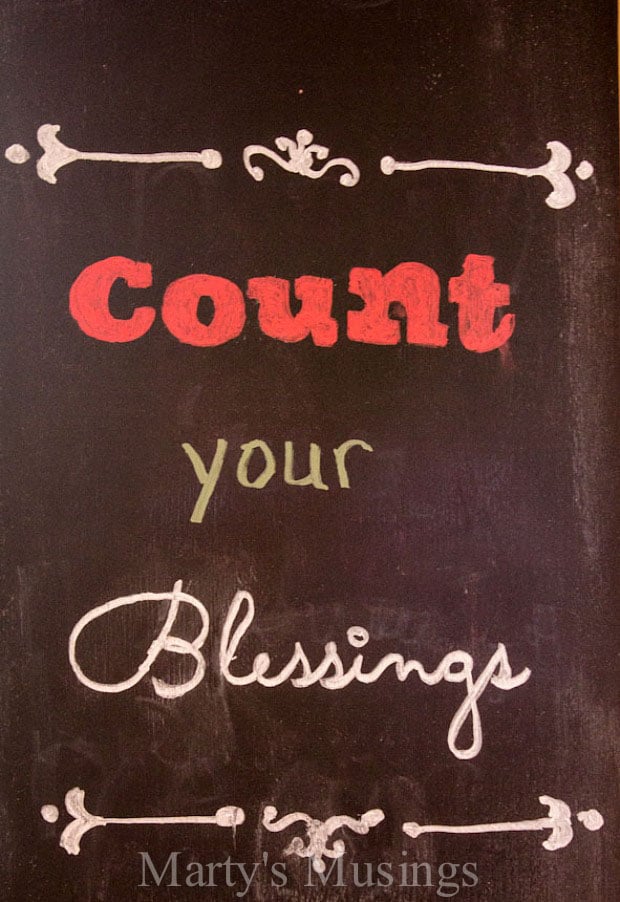 Count
your
Blessings
Marty's Musings